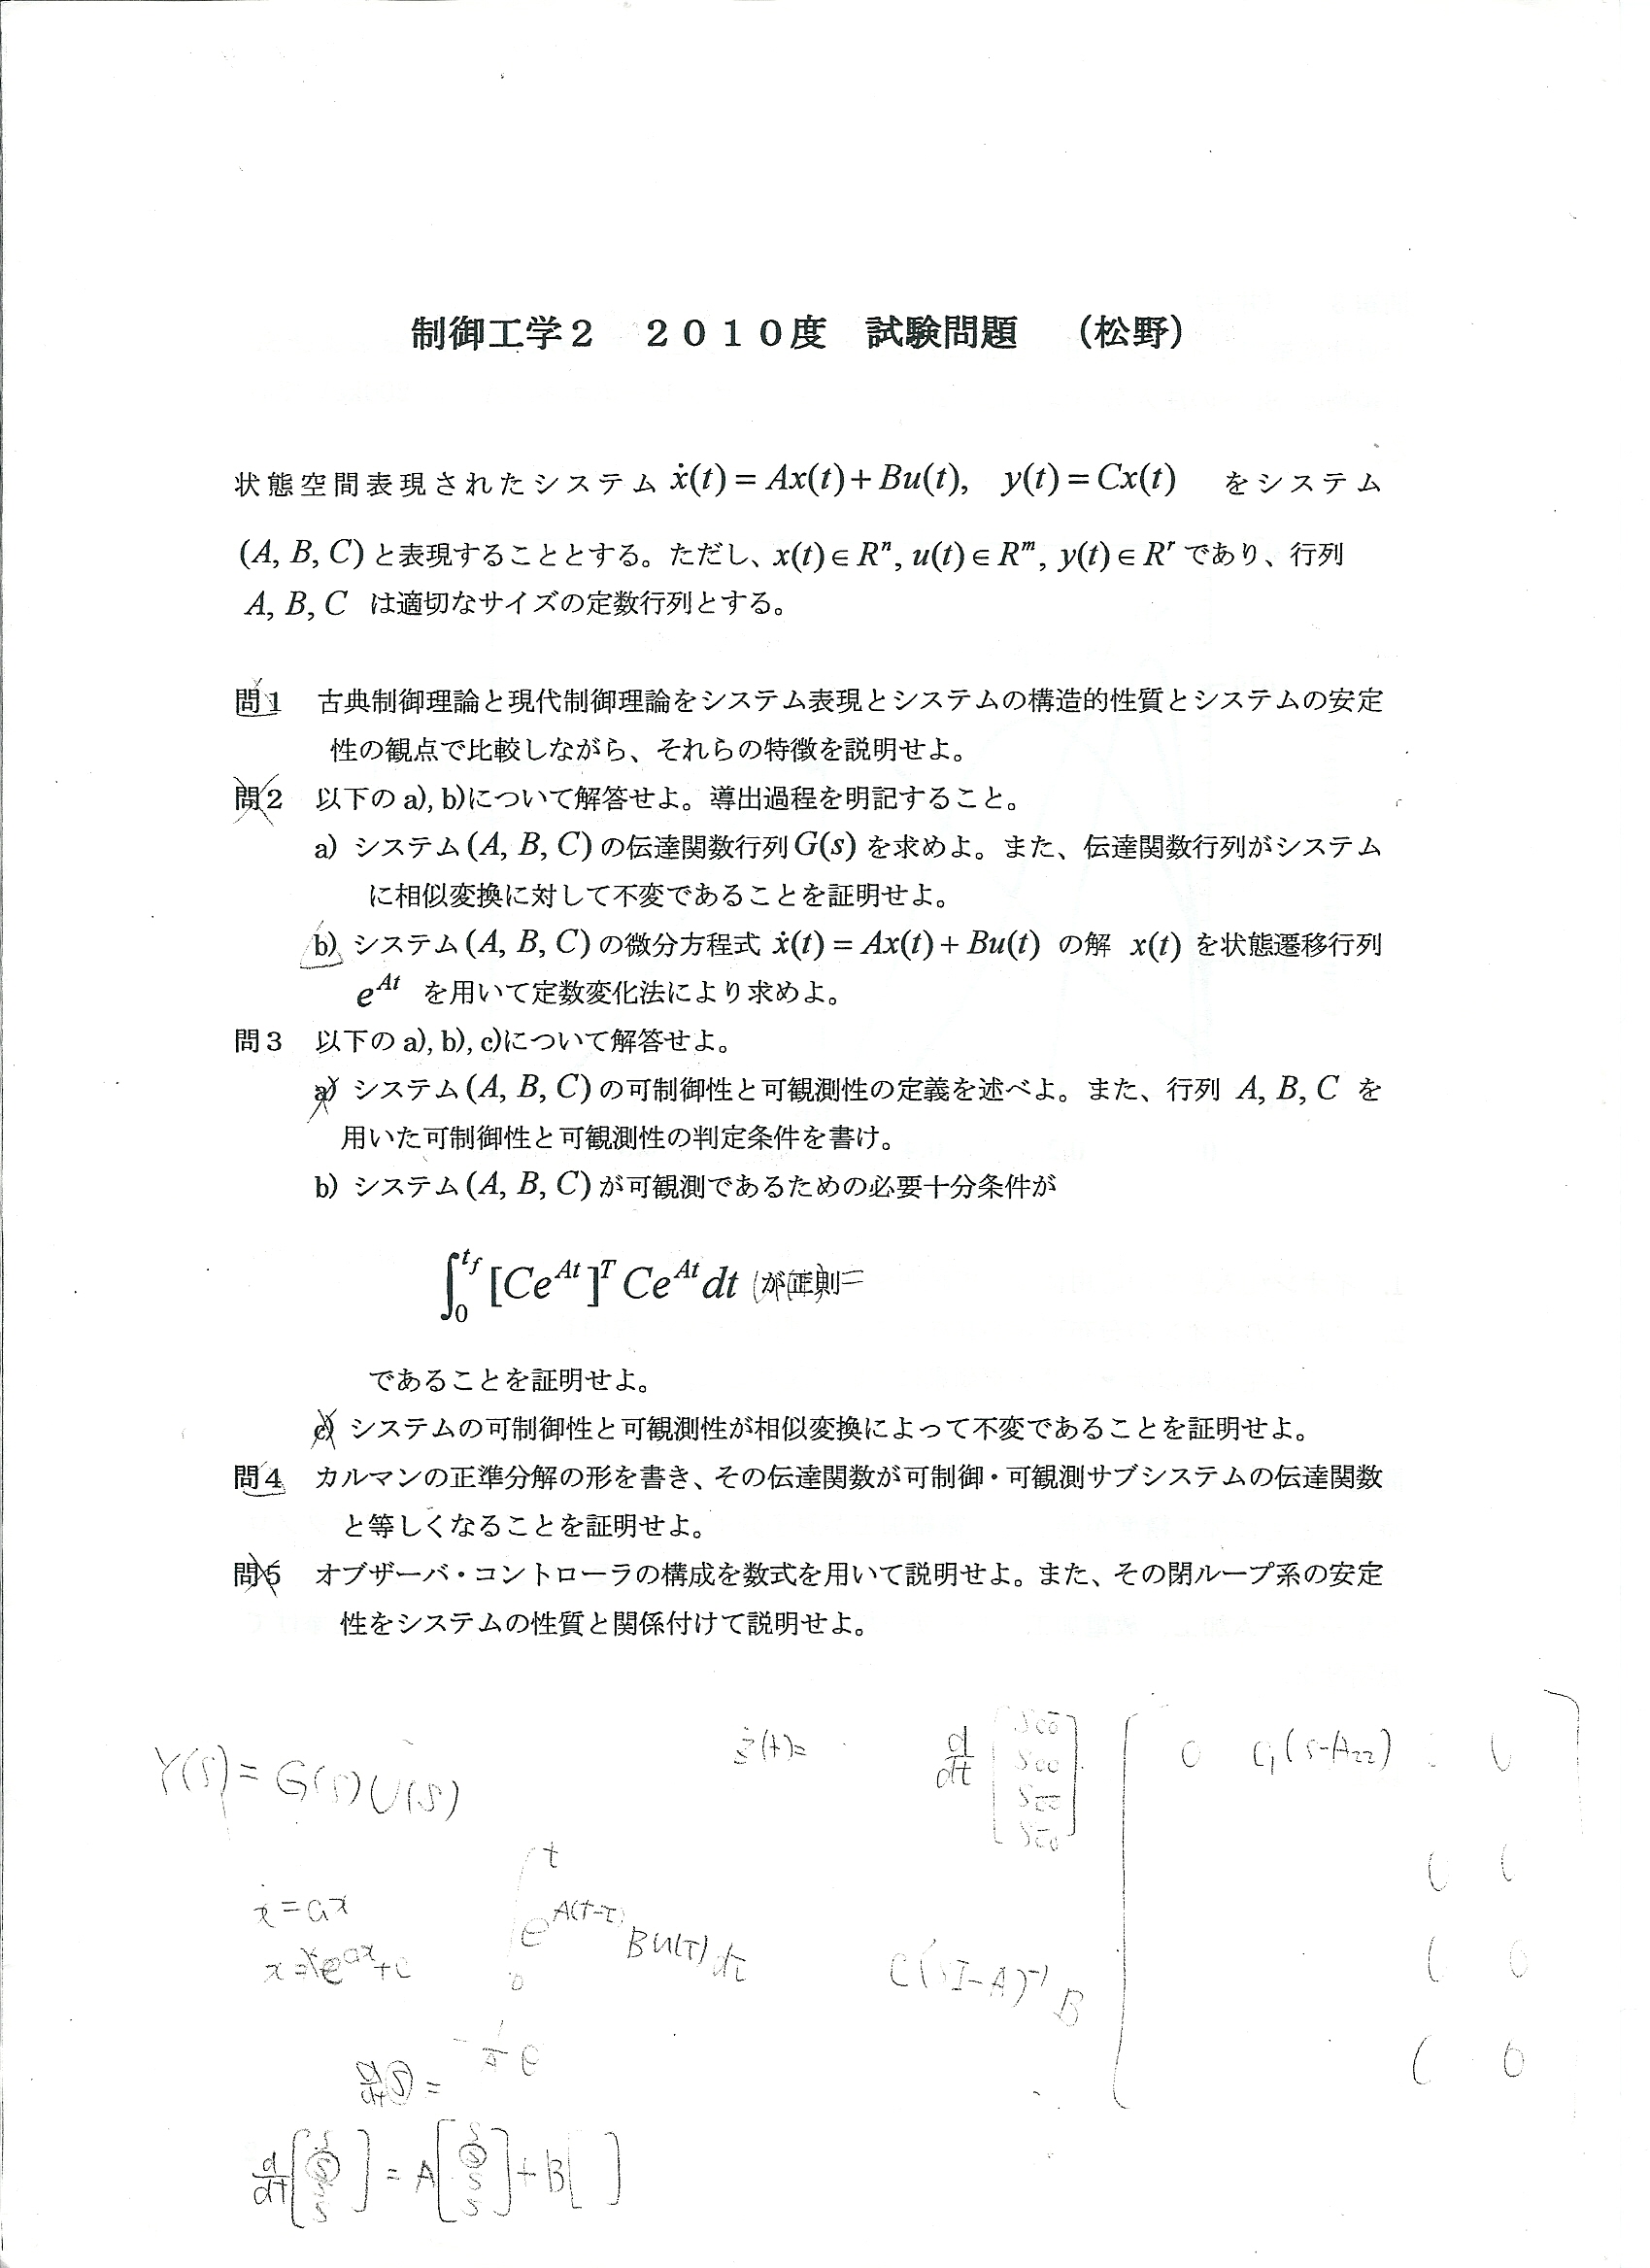 制御工学２　２０１０度　試験問題　（松野）
状態空間表現されたシステム ẋ(t) = Ax(t) + Bu(t),　y(t) = Cx(t)　をシステム
(A, B, C) と表現することとする。ただし、x(t) ∈ Rⁿ, u(t) ∈ Rᵐ, y(t) ∈ Rʳ であり、行列
A, B, C は適切なサイズの定数行列とする。
問１　古典制御理論と現代制御理論をシステム表現とシステムの構造的性質とシステムの安定
性の観点で比較しながら、それらの特徴を説明せよ。
問２　以下の a), b)について解答せよ。導出過程を明記すること。
a) システム (A, B, C) の伝達関数行列 G(s) を求めよ。また、伝達関数行列がシステム
に相似変換に対して不変であることを証明せよ。
b) システム (A, B, C) の微分方程式 ẋ(t) = Ax(t) + Bu(t) の解 x(t) を状態遷移行列
e^{At} を用いて定数変化法により求めよ。
問３　以下の a), b), c)について解答せよ。
a) システム (A, B, C) の可制御性と可観測性の定義を述べよ。また、行列 A, B, C を
用いた可制御性と可観測性の判定条件を書け。
b) システム (A, B, C) が可観測であるための必要十分条件が
∫₀^{t_f} [Ce^{At}]^T Ce^{At} dt が正則
であることを証明せよ。
c) システムの可制御性と可観測性が相似変換によって不変であることを証明せよ。
問４　カルマンの正準分解の形を書き、その伝達関数が可制御・可観測サブシステムの伝達関数
と等しくなることを証明せよ。
問５　オブザーバ・コントローラの構成を数式を用いて説明せよ。また、その閉ループ系の安定
性をシステムの性質と関係付けて説明せよ。
Y(s) = G(s) U(s)
ẋ = ax
∫₀^t e^{A(t-τ)} Bu(τ) dτ
C(sI-A)⁻¹B